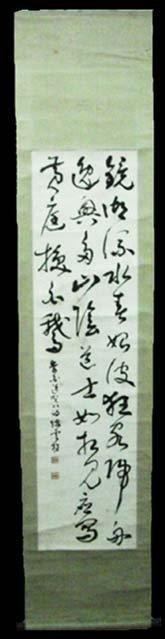 鏡湖流水春始波狂客歸舟
逸興多山陰道士如相見應寫
黃庭換白鵝